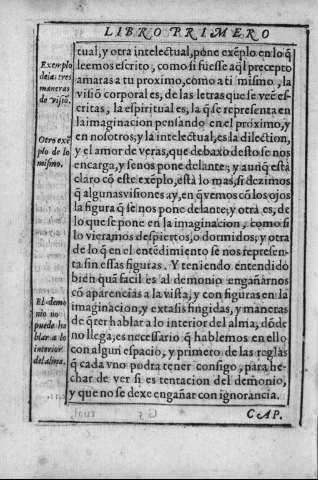 LIBRO PRIMERO
tual, y otra intelectual, pone exẽplo en lo q̃
leemos escrito, como si fuesse aq̃l precepto
amaras a tu proximo, como a ti mismo, la
visiõ corporal es, de las letras que se veẽ es-
critas, la espiritual es, la q̃ se representa en
la imaginacion pensando en el proximo, y
en nosotros; y la intelectual, es la dilectiõn,
y el amor de veras, que debaxo desto se nos
encarga, y se nos pone delante; y aunq̃ està
claro cõ este exẽplo, està lo mas, si dezimos
q̃ algunas visiones ay, en q̃ vemos cõ los ojos
la figura q̃ se nos pone delante; y otra es, de
lo que se pone en la imaginacion, como si
lo vieramos despiertos, o dormidos; y otra
de lo q̃ en el entẽdimiento se nos represen-
ta sin essas figuras. Y teniendo entendido
bien quã facil es al demonio engañarnos
cõ aparencias a la vista, y con figuras en la
imaginacion, y extasis fingidas, y maneras
de q̃rer hablar a lo interior del alma, dõde
no llega, es necessario q̃ hablemos en ello
con algun espacio, y primero de las reglas
q̃ cada vno podra tener consigo, para he-
char de ver si es tentacion del demonio,
y que no se dexe engañar con ignorancia.
CAP.
Exemplo
de las tres
maneras
de visiõ.
Otro exẽ
plo de lo
mismo.
El demo
nio no
puede ha
blar a lo
interior
del alma.